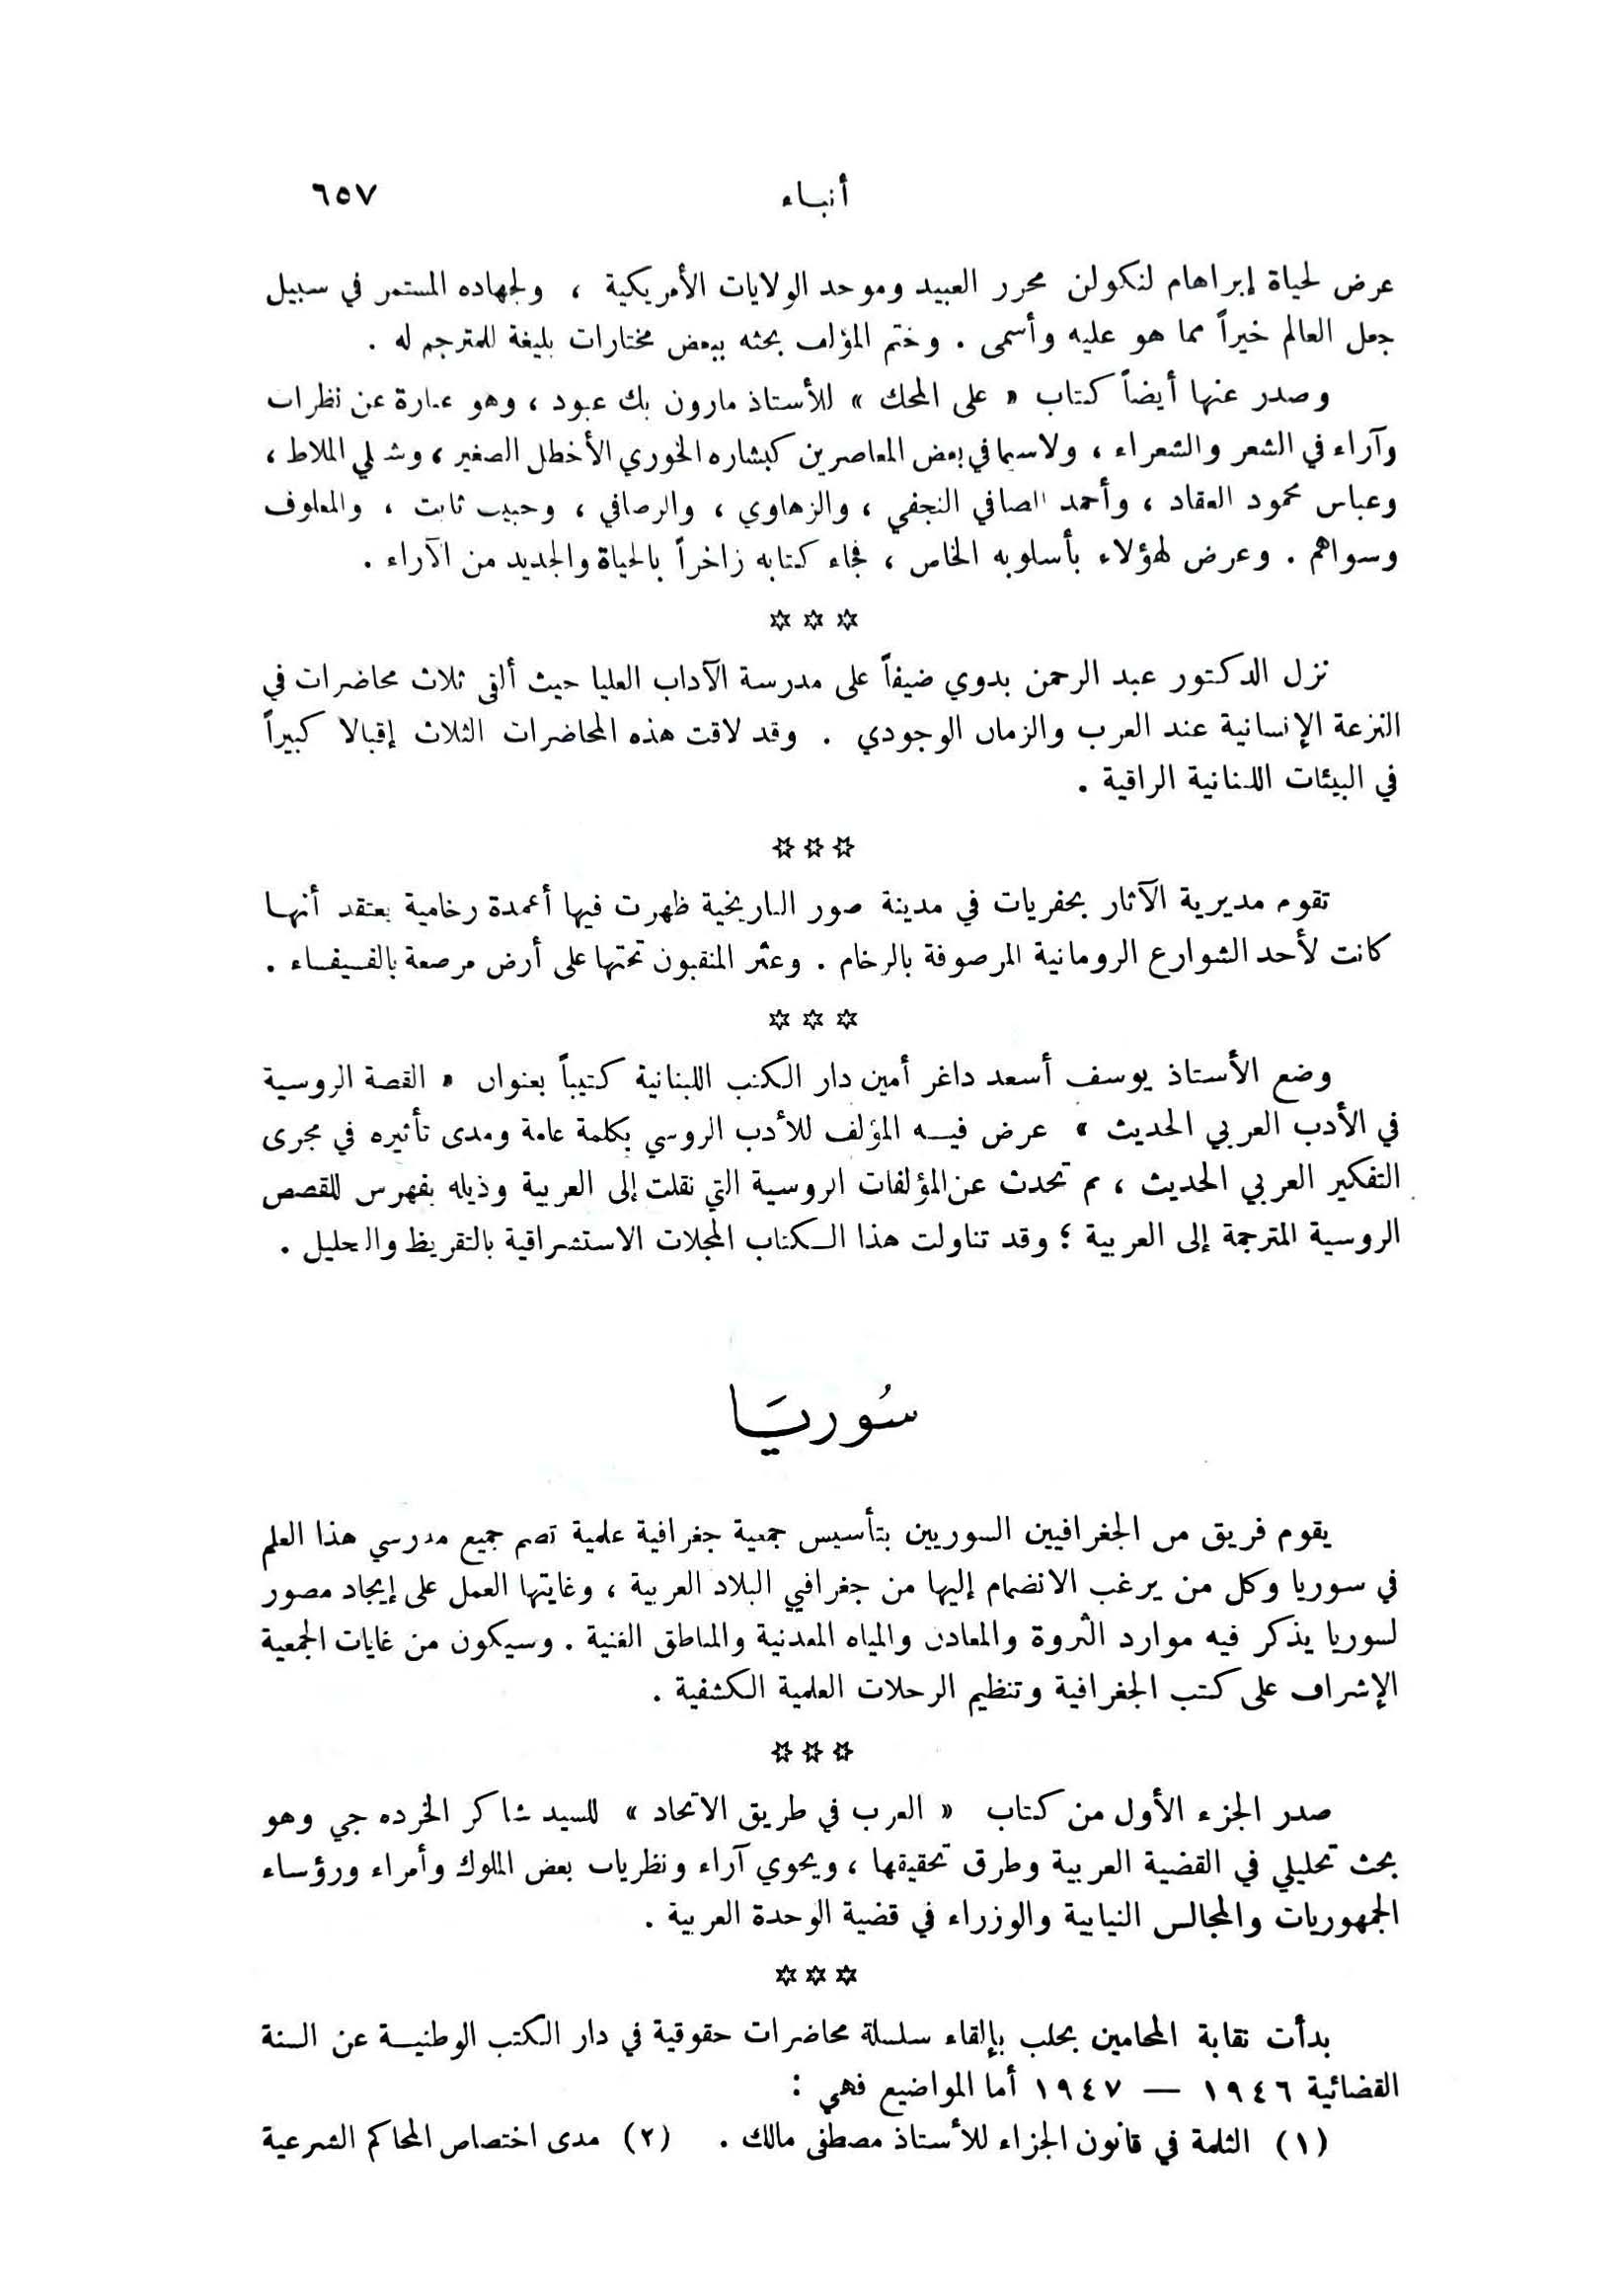 أنباء ٦٥٧
عرض لحياة إبراهام لنكولن محرر العبيد وموحد الولايات الأمريكية ، ولجهاده المستمر في سبيل
جعل العالم خيراً مما هو عليه وأسمى . وختم المؤلف بحثه ببعض مختارات بليغة للمترجم له .
وصدر عنها أيضاً كتاب « على المحك » للأستاذ مارون بك عبود ، وهو عبارة عن نظرات
وآراء في الشعر والشعراء ، ولاسيما في بعض المعاصرين كبشاره الخوري الأخطل الصغير ، وشبلي الملاط ،
وعباس محمود العقاد ، وأحمد الصافي النجفي ، والزهاوي ، والرصافي ، وحبيب ثابت ، والمعلوف
وسواهم . وعرض لهؤلاء بأسلوبه الخاص ، فجاء كتابه زاخراً بالحياة والجديد من الآراء .
* * *
نزل الدكتور عبد الرحمن بدوي ضيفاً على مدرسة الآداب العليا حيث ألقى ثلاث محاضرات في
النزعة الإنسانية عند العرب والزمان الوجودي . وقد لاقت هذه المحاضرات الثلاث إقبالا كبيراً
في البيئات اللبنانية الراقية .
* * *
تقوم مديرية الآثار بحفريات في مدينة صور التاريخية ظهرت فيها أعمدة رخامية يعتقد أنها
كانت لأحد الشوارع الرومانية المرصوفة بالرخام . وعثر المنقبون تحتها على أرض مرصعة بالفسيفساء .
* * *
وضع الأستاذ يوسف أسعد داغر أمين دار الكتب اللبنانية كتيباً بعنوان « القصة الروسية
في الأدب العربي الحديث » عرض فيه المؤلف للأدب الروسي بكلمة عامة ومدى تأثيره في مجرى
التفكير العربي الحديث ، ثم تحدث عن المؤلفات الروسية التي نقلت إلى العربية وذيله بفهرس للقصص
الروسية المترجمة إلى العربية ؛ وقد تناولت هذا الكتاب المجلات الاستشراقية بالتقريظ والتحليل .
سُوريَا
يقوم فريق من الجغرافيين السوريين بتأسيس جمعية جغرافية علمية تضم جميع مدرسي هذا العلم
في سوريا وكل من يرغب الانضمام إليها من جغرافيي البلاد العربية ، وغايتها العمل على إيجاد مصور
لسوريا يذكر فيه موارد الثروة والمعادن والمياه المعدنية والمناطق الغنية . وسيكون من غايات الجمعية
الإشراف على كتب الجغرافية وتنظيم الرحلات العلمية الكشفية .
* * *
صدر الجزء الأول من كتاب « العرب في طريق الاتحاد » للسيد شاكر الخرده جي وهو
بحث تحليلي في القضية العربية وطرق تحقيقها ، ويحوي آراء ونظريات بعض الملوك وأمراء ورؤساء
الجمهوريات والمجالس النيابية والوزراء في قضية الوحدة العربية .
* * *
بدأت نقابة المحامين بحلب بإلقاء سلسلة محاضرات حقوقية في دار الكتب الوطنية عن السنة
القضائية ١٩٤٦ — ١٩٤٧ أما المواضيع فهي :
(١) الثلمة في قانون الجزاء للأستاذ مصطفى مالك . (٢) مدى اختصاص المحاكم الشرعية